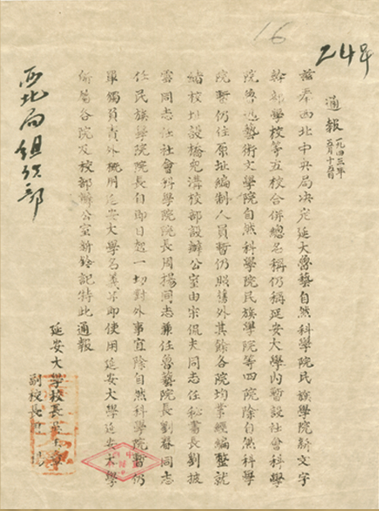 16
24号
通報
一九四三年
茲奉西北中央局決定延大魯藝自然科學院民族學院新文字
幹部學校等五校合併總名稱仍稱延安大學內暫設社會科學
院魯迅藝術文學院自然科學院民族學院等四院除自然科學
院暫仍住原址編制人員暫仍照舊外其餘各院均業經編整就
緒校址設橋兒溝校部設辦公室由宗侃夫同志任秘書長劉披
雲同志任社會科學院院長周揚同志兼任魯藝院長劉春同志
任民族學院院長自即日起一切對外事宜除自然科學院暫仍
單獨負責外統用延安大學名義並即使用延安大學延安大學
各院及校部辦公室新鈐記特此通報
延安大學校長
副校長
西北局组织部